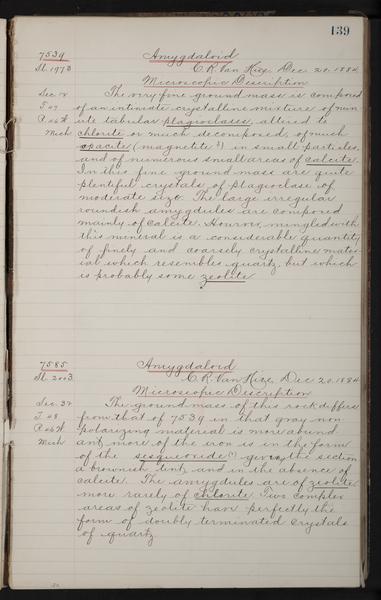 139
7539 Amygdaloid
Sl. 1973 C. R. Van Hise, Dec. 20, 1884
Microscopic Description
Sec. 12 The very fine ground mass is composed
T 49 of an intimate crystalline mixture of min
R 46 W ute tabular plagioclases, altered to
Mich chlorite or much decomposed, of much
opacite (magnetite ?) in small particles,
and of numerous small areas of calcite.
In this fine ground mass are quite
plentiful crystals of plagioclase of
moderate size. The large irregular
roundish amygdules are composed
mainly of calcite. However, mingled with
this mineral is a considerable quantity
of finely and coarsely crystalline mater
ial which resembles quartz, but which
is probably some zeolite
7585 Amygdaloid
Sl. 2003. C. R. Van Hise, Dec 20, 1884
Microscopic Description
Sec. 32 The ground mass of this rock differs
T 48 from that of 7539 in that gray non
R 46 W polarizing material is more abund
Mich ant, more of the iron is in the form
of the sesquioxide (?) giving the section
a brownish tint, and in the absence of
calcite. The amygdules are of zeolite,
more rarely of chlorite. Two complex
areas of zeolite have perfectly the
form of doubly terminated crystals
of quartz